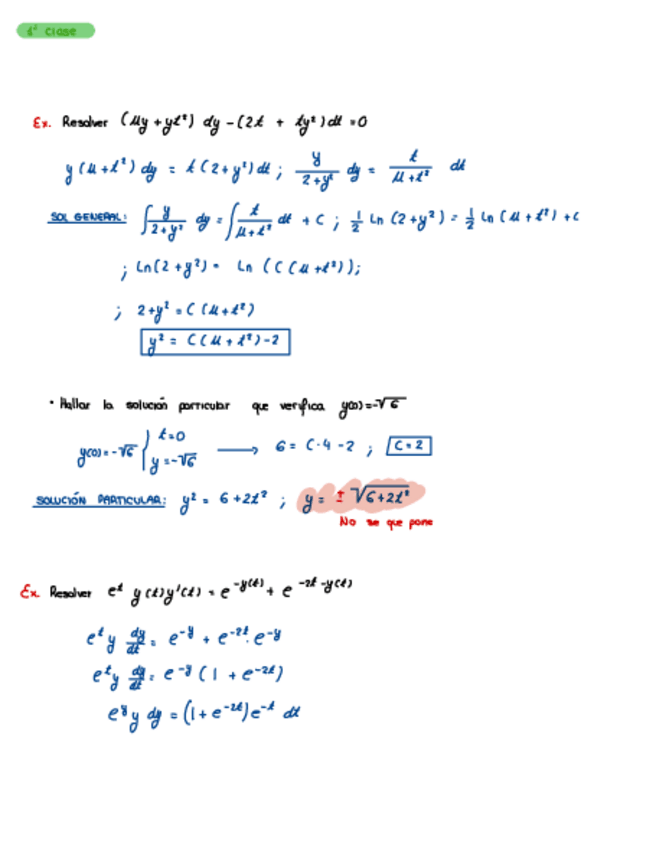 1ª Clase
Ex. Resolver (4y + yt²) dy - (2t + ty²) dt = 0
y(4+t²) dy = t(2+y²) dt ; y/(2+y²) dy = t/(4+t²) dt
SOL GENERAL: ∫ y/(2+y²) dy = ∫ t/(4+t²) dt + C ; 1/2 Ln (2+y²) = 1/2 Ln (4+t²) + C
; Ln(2+y²) = Ln (C(4+t²));
; 2+y² = C(4+t²)
y² = C(4+t²)-2
• Hallar la solución particular que verifica y(0)=-√6
y(0)=-√6 } t=0 y=-√6 ⟶ 6 = C·4-2 ; C=2
SOLUCIÓN PARTICULAR: y² = 6+2t² ; y = ± √6+2t²
No se que pone
Ex. Resolver e^t y(t)y'(t) = e^-y(t) + e^-2t-y(t)
e^t y dy/dt = e^-y + e^-2t · e^-y
e^t y dy/dt = e^-y (1 + e^-2t)
e^y y dy = (1+e^-2t)e^-t dt